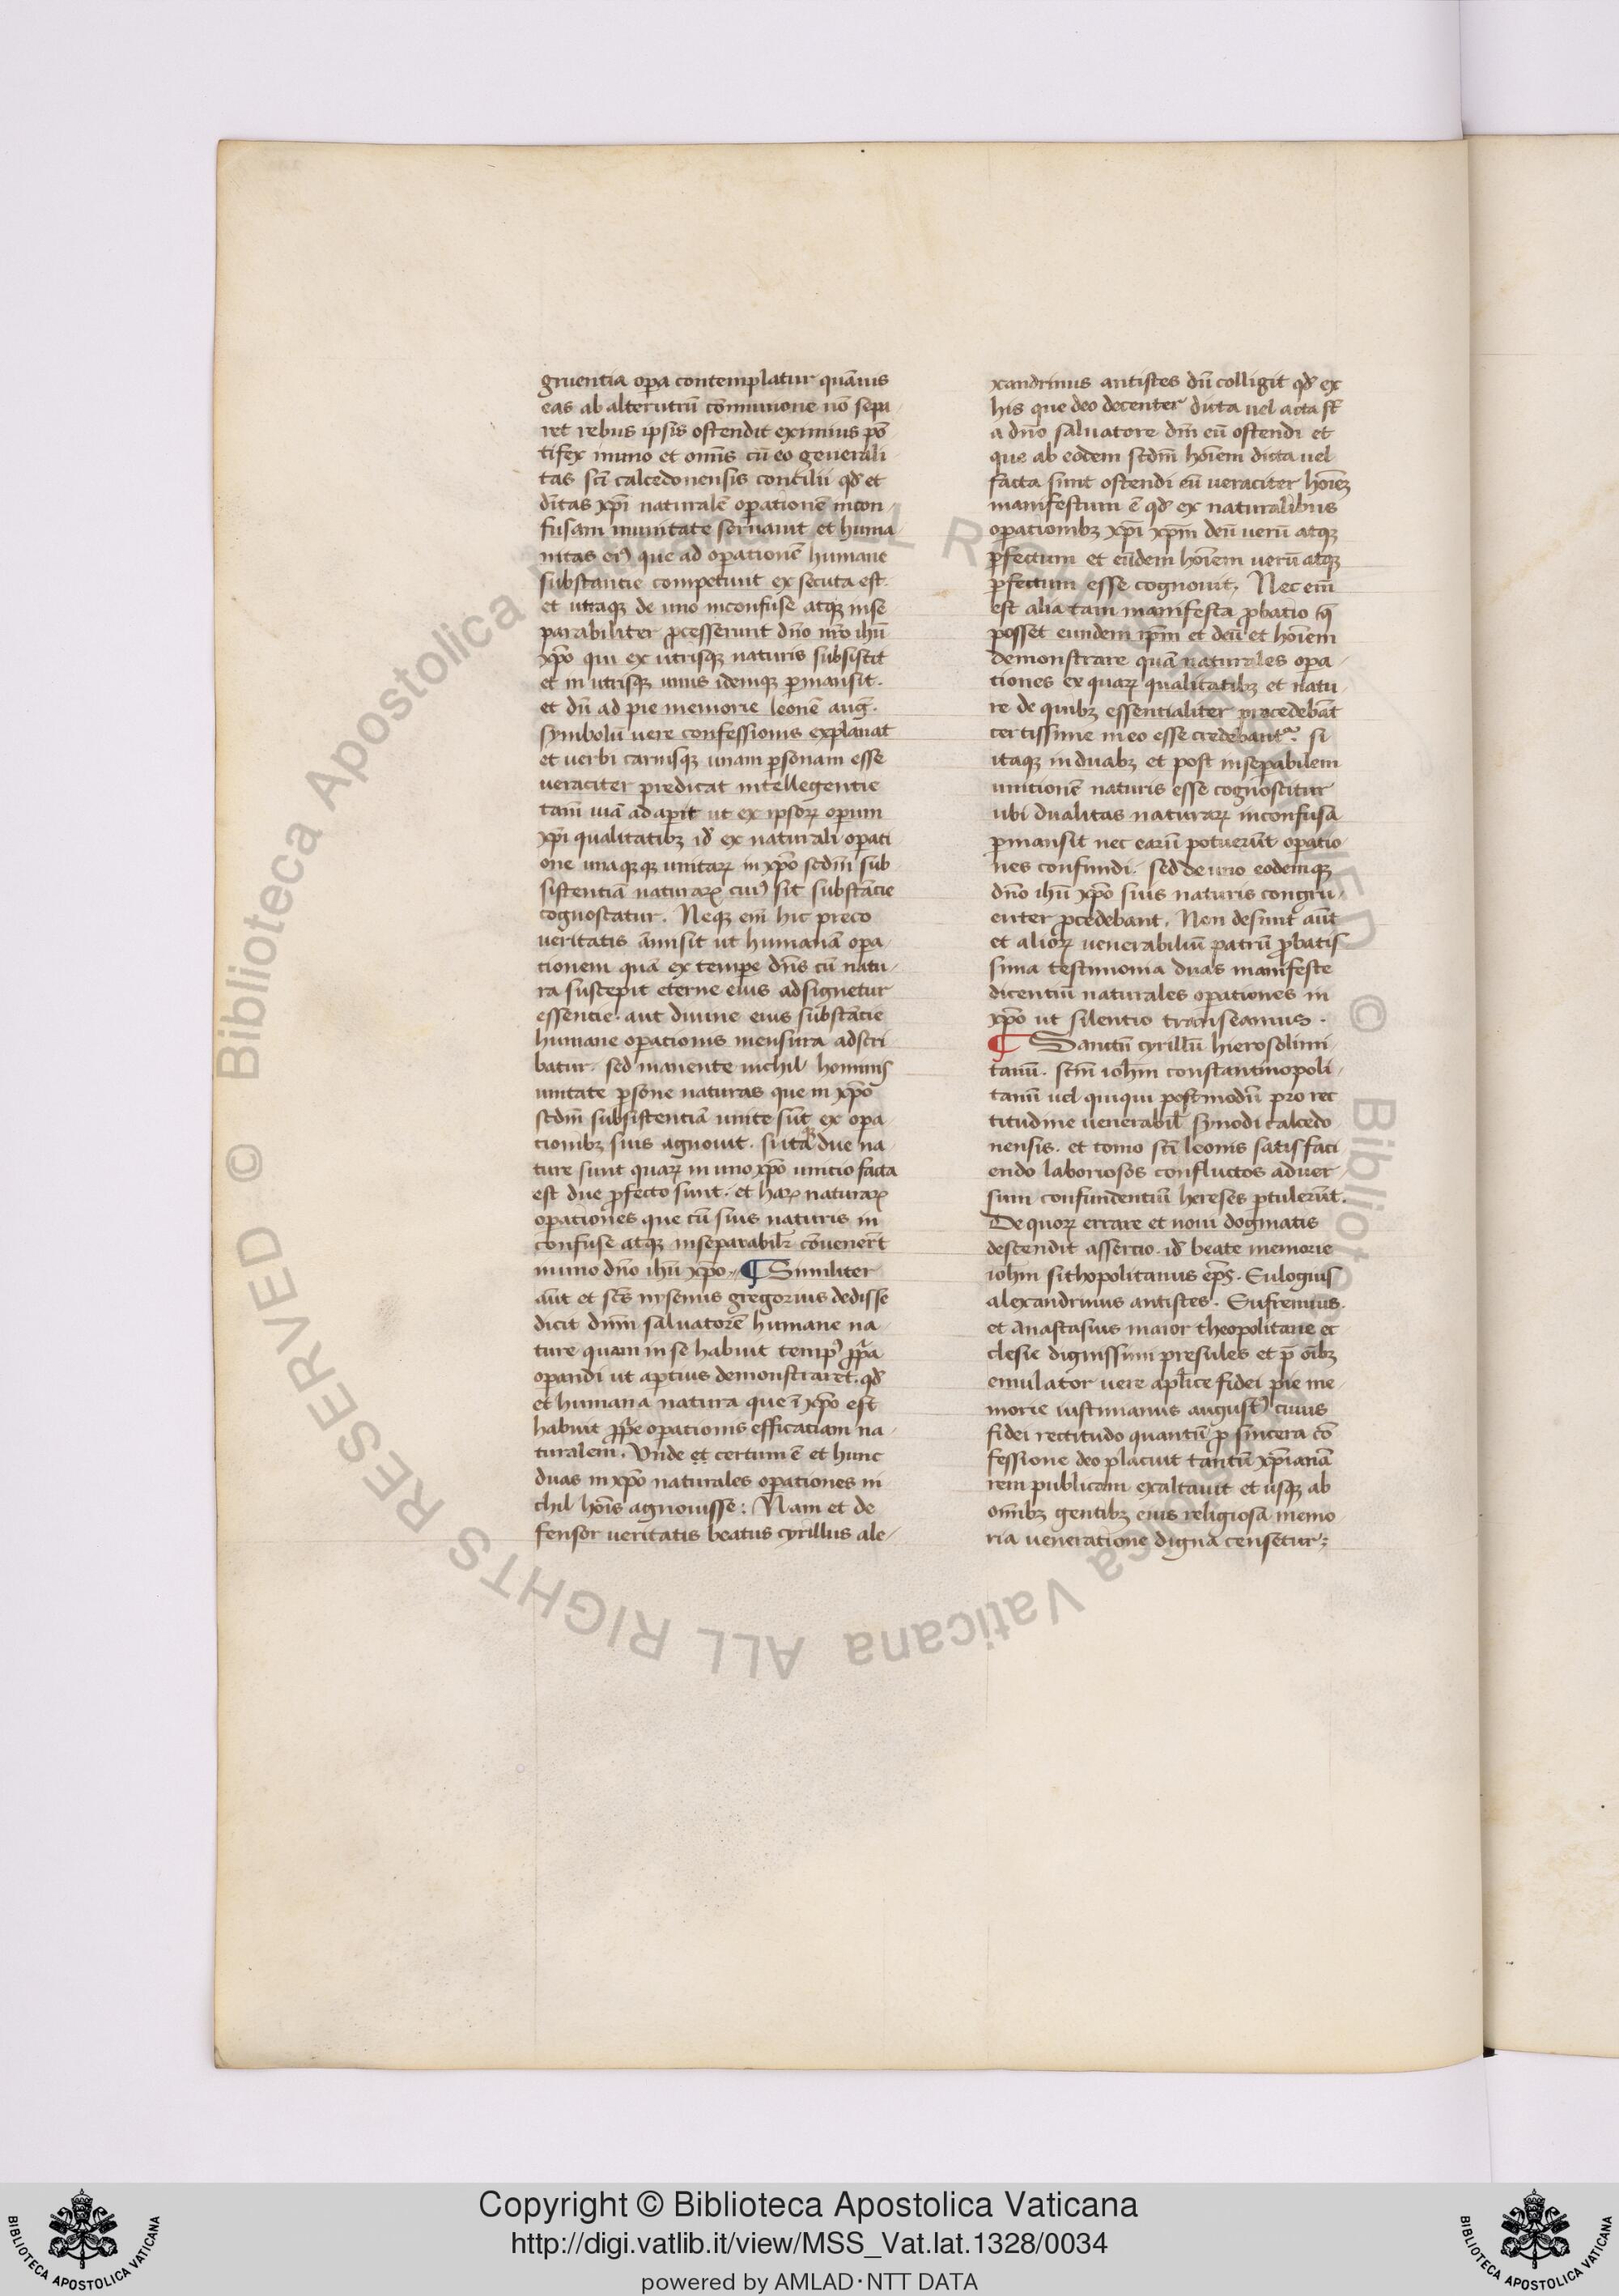 gruentia opa contemplatur quāuis
eas ab alterutrū cōmunione nō sepa
ret rebus ipsis ostendit eximius pō
tifex in uno et omīs cū eo generali
tas scī calcedonensis concilii qd' et
dītas xp̄i naturalē opationē incon
fusam in unitate seruauit et huma
nitas ei9 que ad opationē humane
substantie competunt ex secuta est.
et utraqȝ de uno inconfuse atqȝ inse
parabiliter pcesserunt dn̄o nr̄o ihū
xp̄o qui ex utrisqȝ naturis subsistit
et in utrisqȝ unus idemqȝ pmansit.
et dū ad pie memorie leonē auḡ.
symbolū uere confessionis explanat
et uerbi carnisqȝ unam psonam esse
ueraciter predicat intellegentie
tam̄ uiā adaperit ut ex ipsoꝝ opum
xp̄i qualitatibȝ id' ex naturali opati
one unaqȝqȝ unitaꝝ in xp̄o scdm̄ sub
sistentiā naturaꝝ cui9 sit substācie
cognoscatur. Neqȝ em̄ hic preco
ueritatis āmisit ut humanā opa
tionem quā ex tempe dn̄s cū natu
ra suscepit eterne eius adsignetur
essentie. aut diuine eius substācie
humane opationis mensura adscri
batur. sed manente nichil hominis
unitate psone naturas que in xp̄o
scdm̄ subsistentiā unite sūt ex opa
tionibȝ suis agnouit. si itaqȝ due na
ture sunt quaꝝ in uno xp̄o unitio facta
est due pfecto sunt. et haꝝ naturaꝝ
opationes que cū suis naturis in
confuse atqȝ inseparabilr̄ cōuenert̄
in uno dn̄o ihū xp̄o. ¶ Similiter
aūt et sc̄s nysenus gregorius dedisse
dicit dn̄m saluatorē humane na
ture quam in se habuit temp9 ppa
opandi ut aptius demonstraret. qd'
et humana natura que ī xp̄o est
habuit ppe opationis efficatiam na
turalem. Vnde et certum ē et hunc
duas in xp̄o naturales opationes ni
chil hoīs agnouisse: Nam et de
fensor ueritatis beatus cyrillus ale
xandrinus antistes dū colligit qd' ex
his que deo decenter dicta uel acta st̄
a dn̄o saluatore dm̄ eū ostendi et
que ab eodem scdm̄ hoīem dicta uel
facta sunt ostendi eū ueraciter hoīeȝ
manifestum ē qd' ex naturalibus
opationibȝ xp̄i xp̄m deū uerū atqȝ
pfectum et eūdem hoīem uerū atqȝ
pfectum esse cognouit. Nec em̄
est alia tam manifesta pbatio q̄
posset eundem xp̄m et deū et hoīem
demonstrare quā naturales opa
tiones ex quaꝝ qualitatibȝ et natu
re de quibȝ essentialiter procedebāt
certissime in eo esse credebant᷑. si
itaqȝ in duabȝ et post insepabilem
unitionē naturis esse cognoscitur
ubi dualitas naturaꝝ inconfusa
pmansit nec earū potuerūt opatio
nes confundi. sed de uno eodemqȝ
dn̄o ihū xp̄o suis naturis congru
enter pcedebant. Non desunt aūt
et alioꝝ uenerabiliū patrū pbatis
sima testimonia duas manifeste
dicentiū naturales opationes in
xp̄o ut silentio transeamus.
¶ Sanctū cyrillū hierosolimi
tanū. scm̄ iohm̄ constantinopoli
tanū uel quiqui postmodū pro rec
titudine uenerabil' synodi calcedo
nensis. et tomo scī leonis satisfaci
endo laboriosos conflictos aduer
sum confundentiū hereses ptulerūt.
De quoꝝ errare et noui dogmatis
descendit assertio. id' beate memorie
iohm̄ sithopolitanus ep̄s. Eulogius
alexandrinus antistes. Eufremius.
et Anastasius maior theopolitane ec
clesie dignissimi presules et p̄ oībȝ
emulator uere apl̄ice fidei pie me
morie iustinianus august9 cuius
fidei rectitudo quantū p sincera cō
fessione deo placuit tantū xp̄ianā
rem publicam exaltauit et usqȝ ab
omībȝ gentibȝ eius religiosa memo
ria ueneratione digna censetur:
© Biblioteca Apostolica Vaticana ALL RIGHTS RESERVED
Copyright © Biblioteca Apostolica Vaticana
http://digi.vatlib.it/view/MSS_Vat.lat.1328/0034
powered by AMLAD·NTT DATA
BIBLIOTECA APOSTOLICA VATICANA
BIBLIOTECA APOSTOLICA VATICANA